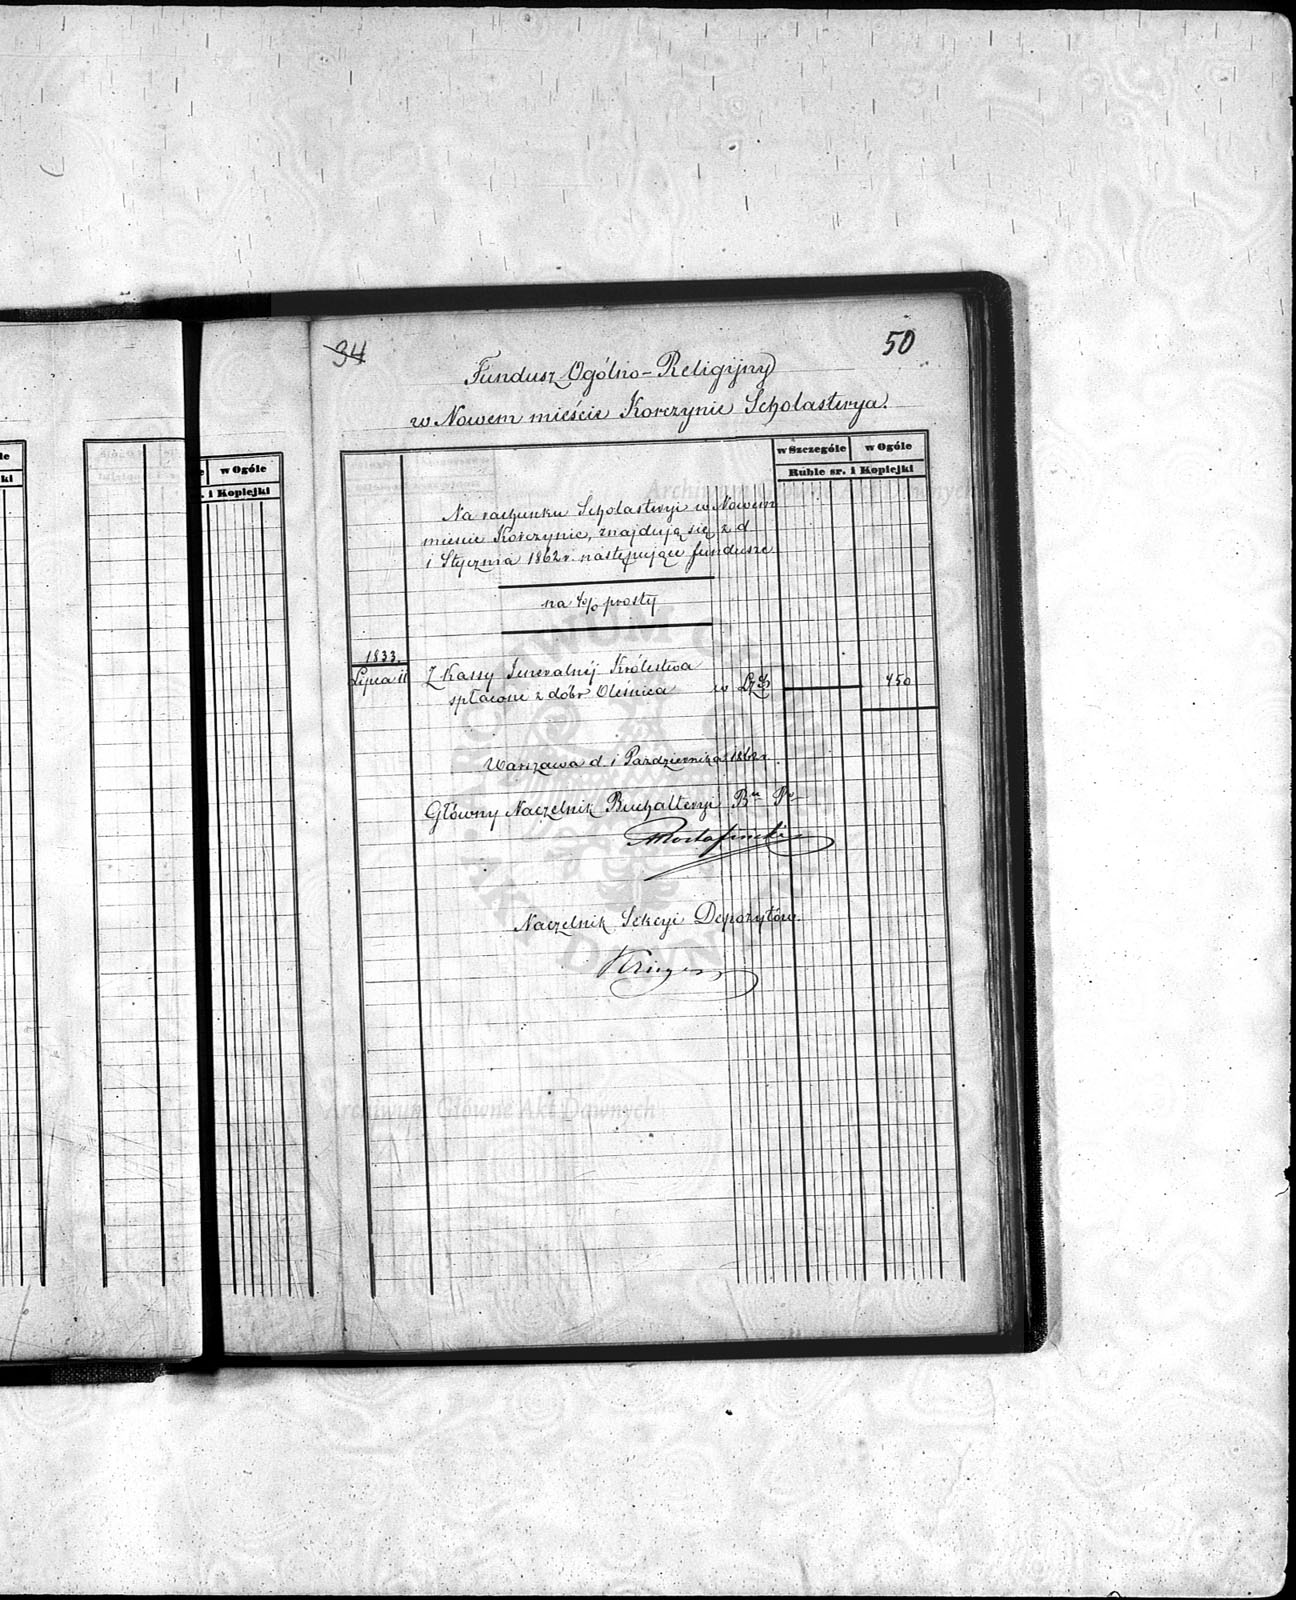 34
50
Fundusz Ogólno-Religijny
w Nowem mieście Korczynie Scholasterya.
w Szczególe w Ogóle
Ruble sr. i Kopiejki
w Ogóle
i Kopiejki
Na rachunku Scholasteryi w Nowem
mieście Korczynie, znajdują się z d
1 Stycznia 1862 r. następujące fundusze
na % prosty
1833.
Lipca 11 Z Kassy Jeneralnéj Królestwa
spłacone z dóbr Oleśnica w 450
Warszawa d. 1 Października 1862 r.
Główny Naczelnik Buchalteryi
Naczelnik Sekcyi Depozytów
Archiwum Główne Akt Dawnych
Archiwum Główne Akt Dawnych